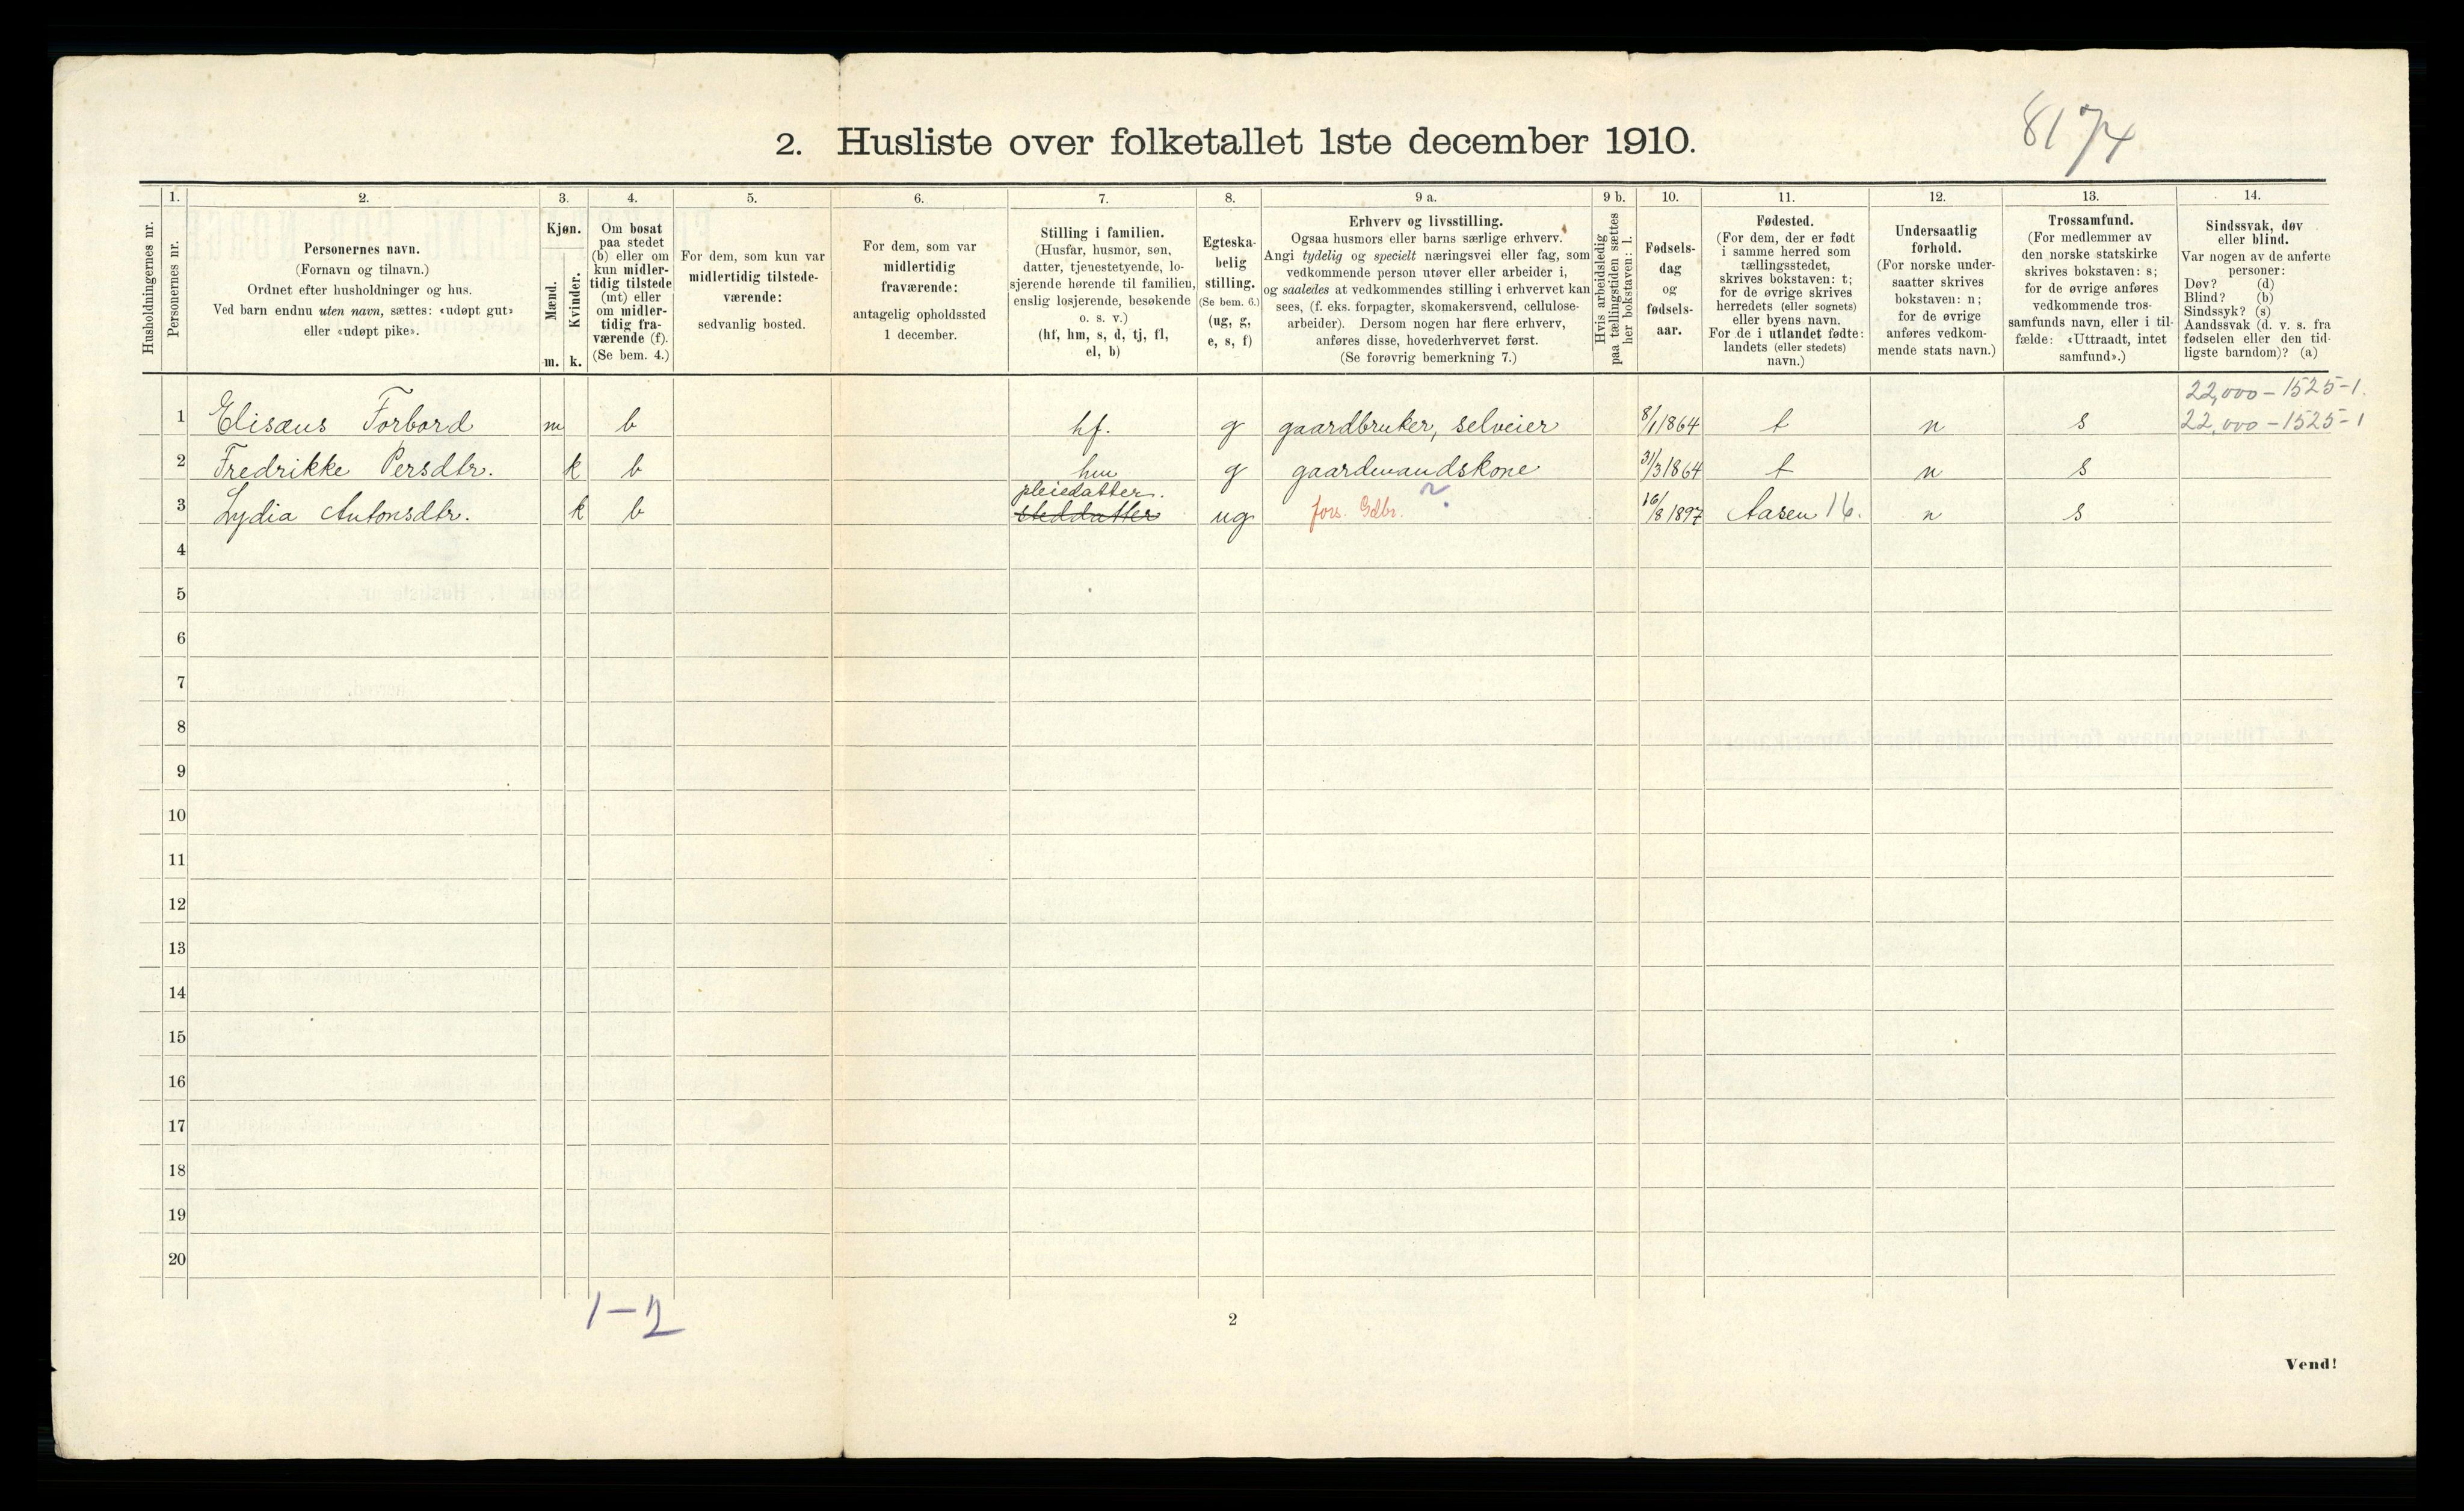 8174
2. Husliste over folketallet 1ste december 1910.
1. 2. 3. 4. 5. 6. 7. 8. 9 a. 9 b. 10. 11. 12. 13. 14.
Husholdningernes nr.
Personernes nr.
Personernes navn.
(Fornavn og tilnavn.)
Ordnet efter husholdninger og hus.
Ved barn endnu uten navn, sættes: «udøpt gut»
eller «udøpt pike».
Kjøn.
Mænd.
Kvinder.
m. k.
Om bosat
paa stedet
(b) eller om
kun midler-
tidig tilstede
(mt) eller
om midler-
tidig fra-
værende (f).
(Se bem. 4.)
For dem, som kun var
midlertidig tilstede-
værende:
sedvanlig bosted.
For dem, som var
midlertidig
fraværende:
antagelig opholdssted
1 december.
Stilling i familien.
(Husfar, husmor, søn,
datter, tjenestetyende, lo-
sjerende hørende til familien,
enslig losjerende, besøkende
o. s. v.)
(hf, hm, s, d, tj, fl,
el, b)
Egteska-
belig
stilling.
(Se bem. 6.)
(ug, g,
e, s, f)
Erhverv og livsstilling.
Ogsaa husmors eller barns særlige erhverv.
Angi tydelig og specielt næringsvei eller fag, som
vedkommende person utøver eller arbeider i,
og saaledes at vedkommendes stilling i erhvervet kan
sees, (f. eks. forpagter, skomakersvend, cellulose-
arbeider). Dersom nogen har flere erhverv,
anføres disse, hovederhvervet først.
(Se forøvrig bemerkning 7.)
Hvis arbeidsledig
paa tællingstiden sættes
her bokstaven: l.
Fødsels-
dag
og
fødsels-
aar.
Fødested.
(For dem, der er født
i samme herred som
tællingsstedet,
skrives bokstaven: t;
for de øvrige skrives
herredets (eller sognets)
eller byens navn.
For de i utlandet fødte:
landets (eller stedets)
navn.)
Undersaatlig
forhold.
(For norske under-
saatter skrives
bokstaven: n;
for de øvrige
anføres vedkom-
mende stats navn.)
Trossamfund.
(For medlemmer av
den norske statskirke
skrives bokstaven: s;
for de øvrige anføres
vedkommende tros-
samfunds navn, eller i til-
fælde: «Uttraadt, intet
samfund».)
Sindssvak, døv
eller blind.
Var nogen av de anførte
personer:
Døv? (d)
Blind? (b)
Sindssyk? (s)
Aandssvak (d. v. s. fra
fødselen eller den tid-
ligste barndom)? (a)
22,000 - 1525-1.
1 Elisæus Forbord m b hf. g gaardbruker, selveier 8/1 1864 t n s 22,000 - 1525-1
2 Fredrikke Persdtr. k b hm g gaardmandskone 31/3 1864 t n s
pleiedatter.
3 Lydia Antonsdtr. k b steddatter ug fors. Gdbr. 16/8 1897 Aasen 16. n s
4
5
6
7
8
9
10
11
12
13
14
15
16
17
18
19
20
1-2
2
Vend!